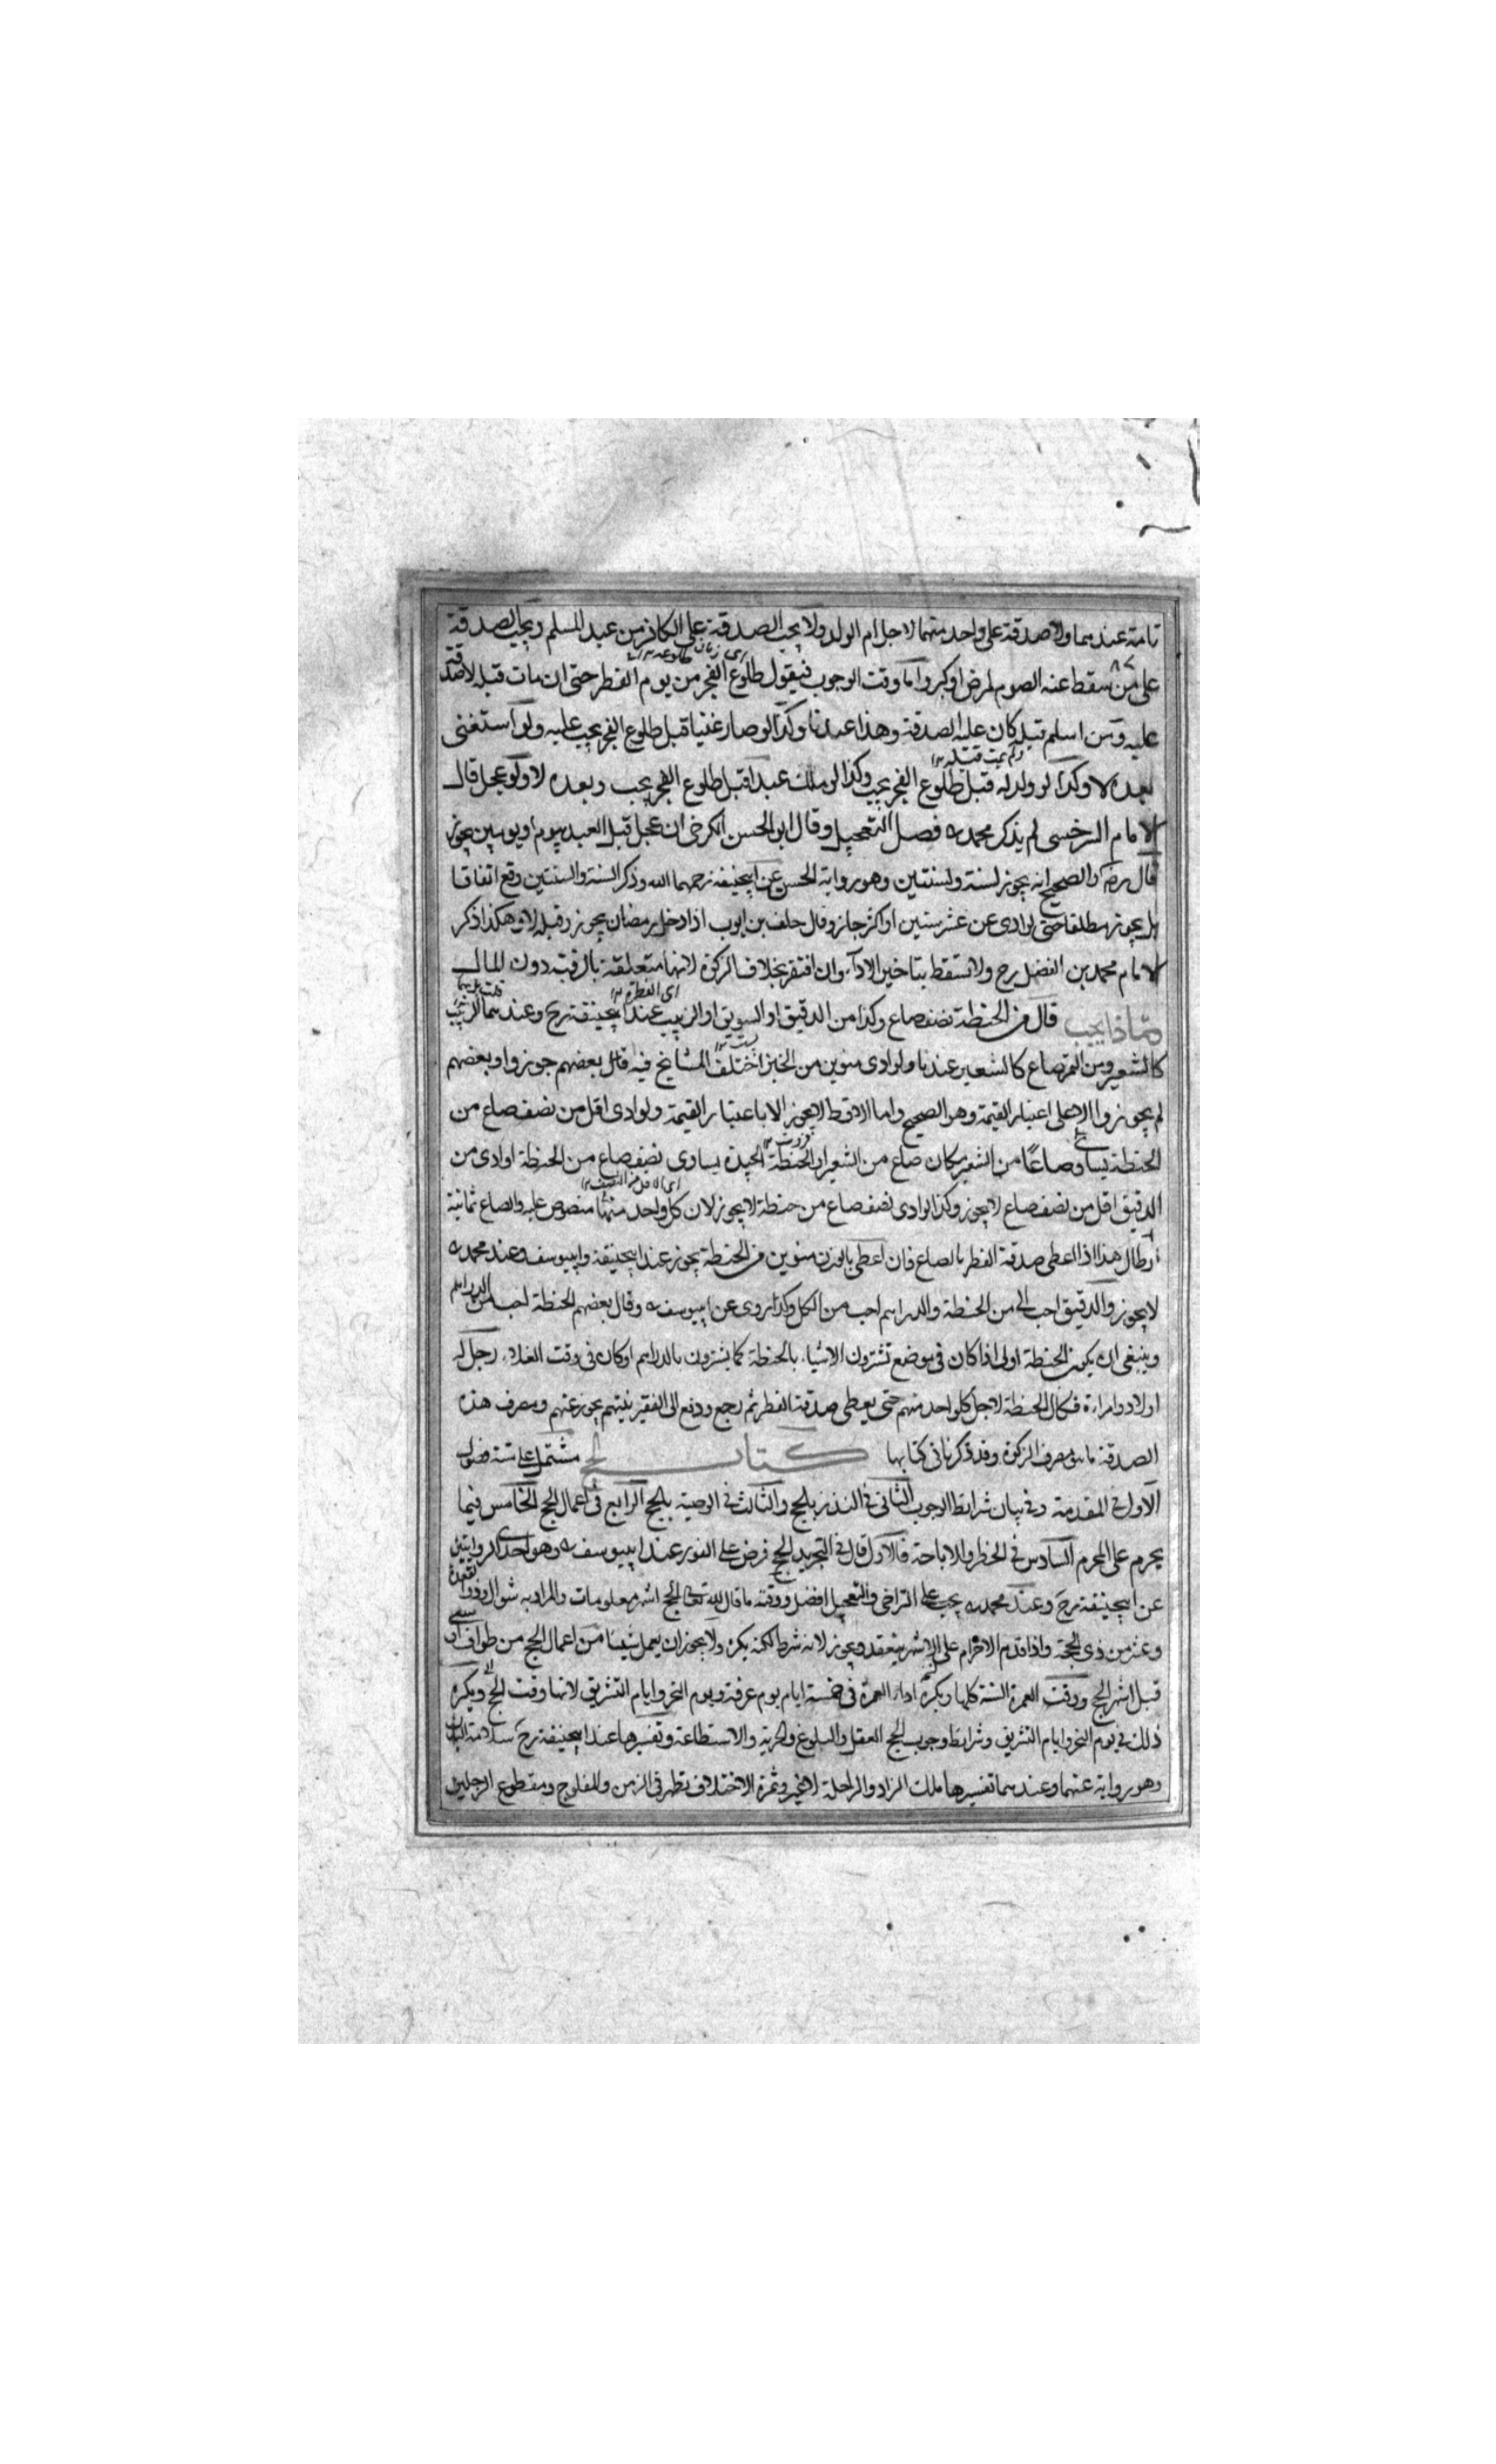 تامة عندهما ولا صدقة على واحد منهما لاجل ام الولد ولا يجب الصدقة على الكافر من عبد المسلم ويجب الصدقة
على من سقط عنه الصوم لمرض او كبر واما وقت الوجوب فيقول طلوع الفجر من يوم الفطر حتى ان مات قبله لا صدقة
عليه ومن اسلم قبله كان عليه الصدقة وهذا عندنا وكذا لو صار غنيا قبل طلوع الفجر يجب عليه ولو استغنى
بعده لا وكذا لو ولد له قبل طلوع الفجر يجب وكذا لو ملك عبدا قبل طلوع الفجر يجب وبعده لا ولو عجل قال
الامام السرخسي لم يذكر محمد ره فصل التعجيل وقال ابن الحسن الكرخي ان عجل قبل العيد بيوم او يومين يجوز
قال رضه والصحيح انه يجوز لسنة ولسنتين وهو رواية الحسن عن ابيحنيفة رحمهما الله وذكر السنة والسنتين وقع اتفاقا
بل يجوز مطلقا حتى لو ادى عن عشر سنين او اكثر جاز وقال خلف بن ايوب اذا دخل رمضان يجوز وقبله لا وهكذا ذكر
الامام محمد بن الفضل رح ولا تسقط بتاخير الاداء وان افتقر بخلاف الزكوة لانها متعلقة بالرقبة دون المال
مماذا يجب قال من الحنطة نصف صاع وكذا من الدقيق او السويق او الزبيب عند ابيحنيفة رح وعندهما الزبيب
كالشعير ومن التمر صاع كالشعير عندنا ولو ادى منوين من الخبز اختلف المشايخ فيه قال بعضهم جوزوا وبعضهم
لم يجوزوا الا على اعتبار القيمة وهو الصحيح واما الاقط لا يجوز الا باعتبار القيمة ولو ادى اقل من نصف صاع من
الحنطة يساوي صاعًا من الشعير مكان صاع من الشعير او الحنطة الجيدة يساوى نصف صاع من الحنطة او ادى من
الدقيق اقل من نصف صاع لا يجوز وكذا لو ادى نصف صاع من حنطة لا يجوز لان كل واحد منهما منصوص عليه والصاع ثمانية
ارطال هذا اذا اعطى صدقة الفطر بالصاع فان اعطى بالوزن منوين من الحنطة يجوز عند ابيحنيفة وابييوسف وعند محمد ره
لا يجوز والدقيق احب الى من الحنطة والدراهم احب من الكل وكذا روى عن ابييوسف ره وقال بعضهم الحنطة احب من الدراهم
وينبغى ان يكون الحنطة اولى اذا كان فى موضع تشترون الاشياء بالحنطة كما يشترون بالدراهم او كان فى وقت الغلاء رجل له
اولاد وامراءة فكال الحنطة لاجل كل واحد منهم حتى يعطى صدقة الفطر ثم رجع ودفع الى الفقير بنيتهم يجوز عنهم ومصرف هذه
الصدقة ما هو مصرف الزكوة وقد ذكرنا فى كتابها كتاب الحج مشتمل على ستة فصول
الاول فى المقدمة وفى بيان شرائط الوجوب الثانى فى النذر بالحج والثالث فى الوصية بالحج الرابع فى اعمال الحج الخامس فيما
يحرم على المحرم السادس فى الحظر والاباحة فالاول قال فى التجريد الحج فرض على الفور عند ابييوسف ره وهو احدى الروايتين
عن ابيحنيفة رح وعند محمد ره يجب على التراخى والتعجيل افضل ووقته ما قال الله تعالى الحج اشهر معلومات والمراد به شوال وذو القعدة
وعشر من ذى الحجة واذا قدم الاحرام على الاشهر ينعقد ويجوز لانه شرط لكنه يكره ولا يجوز ان يعمل شيئا من اعمال الحج من طواف او سعى
قبل اشهر الحج ووقت العمرة السنة كلها ويكره اداء العمرة فى خمسة ايام يوم عرفة ويوم النحر وايام التشريق لانها وقت الحج ويكره
ذلك فى يوم النحر وايام التشريق وشرائط وجوب الحج العقل والبلوغ والحرية والاستطاعة وتفسيرها عند ابيحنيفة رح سلامة البدن
وهو رواية عنهما وعندهما تفسيرها ملك الزاد والراحلة لا غير وثمرة الاختلاف تظهر فى الزمن والمفلوج ومقطوع الرجلين